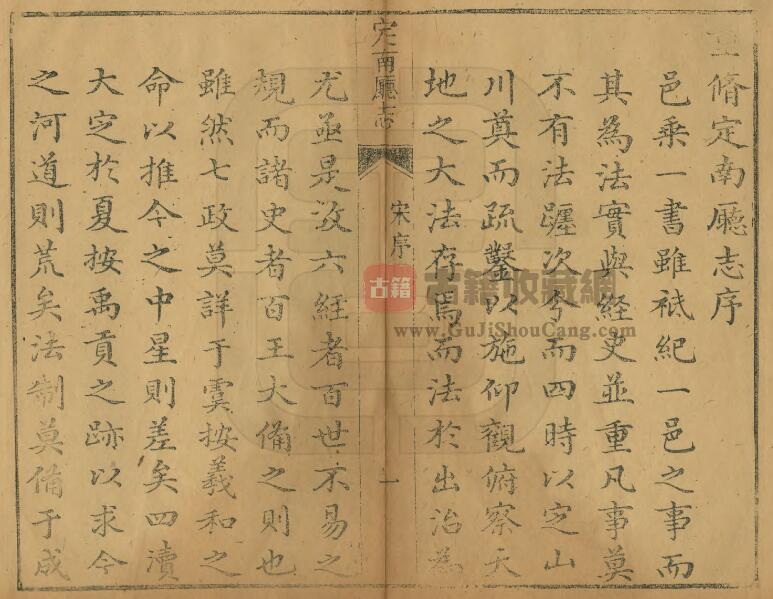 重脩定南廳志序
邑乗一書雖祗紀一邑之事而
其為法實與經史並重凡事莫
不有法躔次分而四時以定山
川奠而疏鑿以施仰觀俯察天
地之大法存焉而法於出治為
定南廳志
宋序
一
尤亟是故六經者百世不易之
規而諸史者百王大備之則也
雖然七政莫詳于虞按羲和之
命以推今之中星則差矣四瀆
大定於夏按禹貢之跡以求今
之河道則荒矣法制莫備于成
古籍
古籍收藏網
www.GuJiShouCang.com